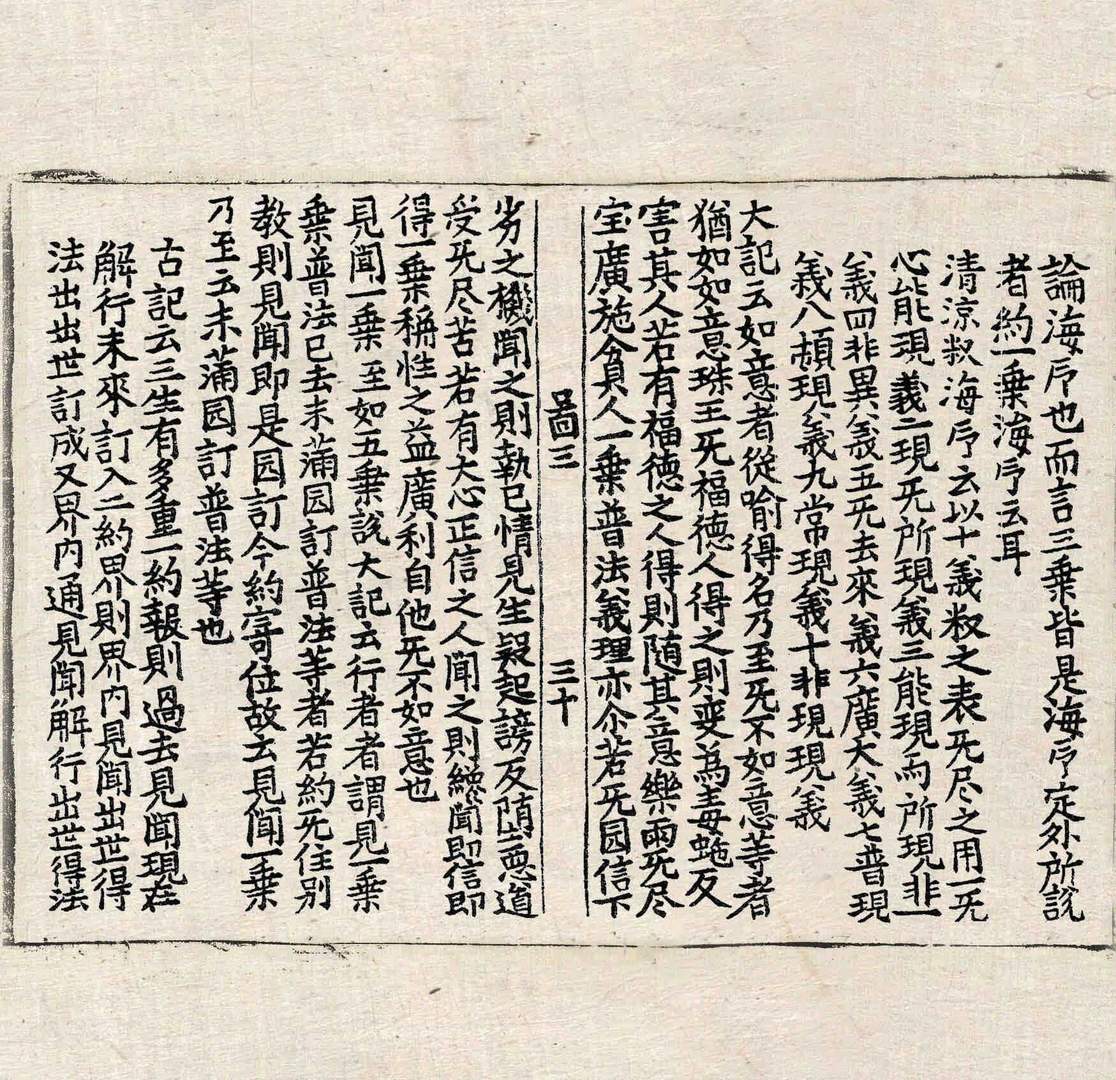 論海印也而言三乗皆是海印定外所說
者約一乗海印云耳
清涼釈海印云以十義釈之表无尽之用一无
心能現義二現无所現義三能現而所現非一
義四非異義五无去來義六廣大義七普現
義八頓現義九常現義十非現現義
大記云如意者從喻得名乃至无不如意等者
猶如如意珠王无福德人得之則变為毒虵反
害其人若有福德之人得則随其意樂雨无尽
宝廣施貧人一乗普法義理亦尒若无园信下
啚三 三十
劣之機聞之則執已情見生疑起謗反堕惡道
受无尽苦若有大心正信之人聞之則纔聞即信即
得一乗稱性之益廣利自他无不如意也
見聞一乗至如五乗說大記云行者者謂見一乗
乗普法已去未满园訂普法等者若約无住別
教則見聞即是园訂今約寄位故云見聞一乗
乃至云未满园訂普法等也
古記云三生有多重一約報則過去見聞現在
解行未來訂入二約界則界內見聞出世得
法出出世訂成又界內通見聞解行出世得法